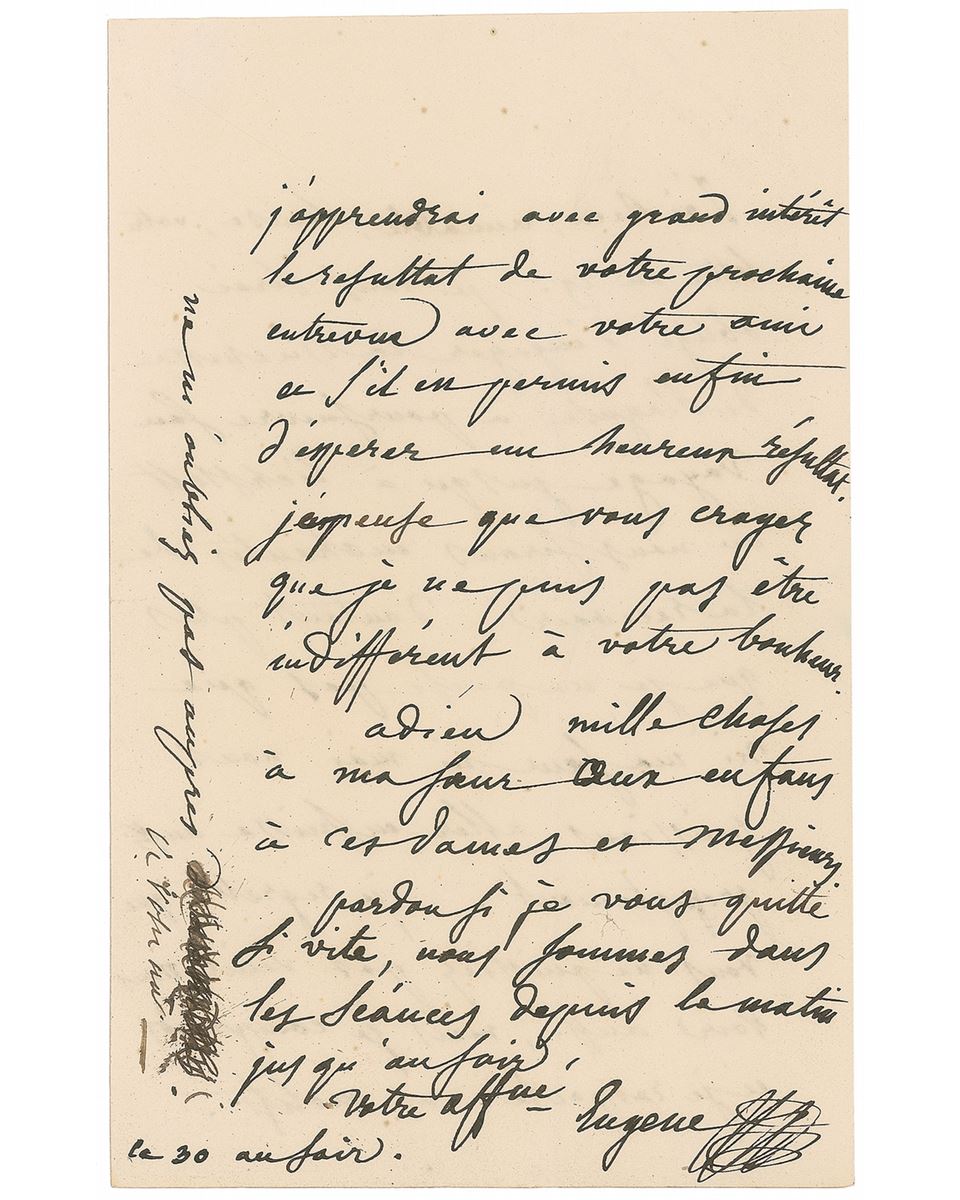 j'apprendrai avec grand intérêt
le resultat de votre prochaine
entrevue avec votre ami
et s'il est permis enfin
d'esperer un heureux résultat.
que vous croyez
que je ne puis pas être
indifférent à votre bonheur.
adieu mille choses
à ma sœur aux enfans
à ces dames et Messieurs
pardon si je vous quitte
si vite, nous sommes dans
les séances depuis le matin
jusqu'au soir,
votre affné Eugene
le 30 au soir.
ne m'oubliez pas aupres
de votre